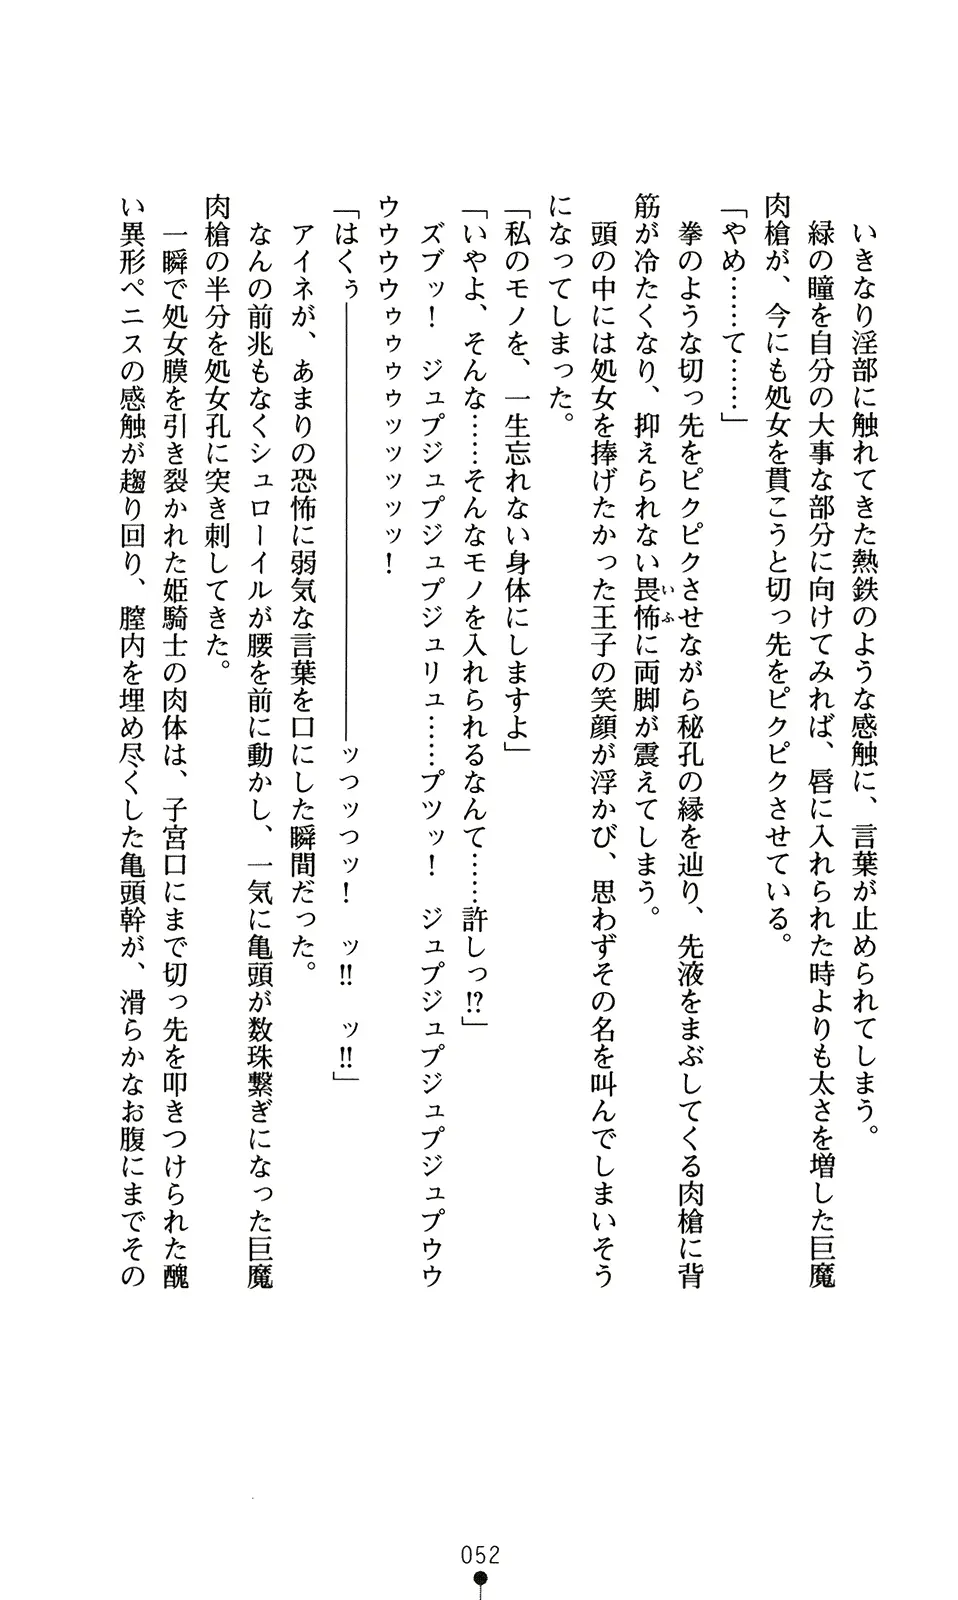 いきなり淫部に触れてきた熱鉄のような感触に、言葉が止められてしまう。
緑の瞳を自分の大事な部分に向けてみれば、唇に入れられた時よりも太さを増した巨魔
肉槍が、今にも処女を貫こうと切っ先をピクピクさせている。
「やめ……て……」
拳のような切っ先をピクピクさせながら秘孔の縁を辿り、先液をまぶしてくる肉槍に背
筋が冷たくなり、抑えられない畏怖いふに両脚が震えてしまう。
頭の中には処女を捧げたかった王子の笑顔が浮かび、思わずその名を叫んでしまいそう
になってしまった。
「私のモノを、一生忘れない身体にしますよ」
「いやよ、そんな……そんなモノを入れられるなんて……許しっ!?」
ズブッ！　ジュプジュプジュプジュリュ……プツッ！　ジュプジュプジュプジュプウウ
ウウウウゥゥゥゥッッッッッ！
「はくぅ――――――――――――――――ッつッつッ！　ッ!!　ッ!!」
アイネが、あまりの恐怖に弱気な言葉を口にした瞬間だった。
なんの前兆もなくシュローイルが腰を前に動かし、一気に亀頭が数珠繋ぎになった巨魔
肉槍の半分を処女孔に突き刺してきた。
一瞬で処女膜を引き裂かれた姫騎士の肉体は、子宮口にまで切っ先を叩きつけられた醜
い異形ペニスの感触が趨り回り、膣内を埋め尽くした亀頭幹が、滑らかなお腹にまでその
052